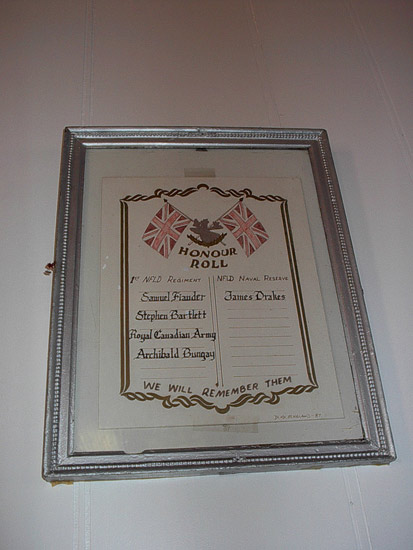 HONOUR
ROLL
1ST NFLD REGIMENT
Samuel Fiander
Stephen Bartlett
Royal Canadian Army
Archibald Dungay
NFLD NAVAL RESERVE
James Drakes
WE WILL REMEMBER THEM